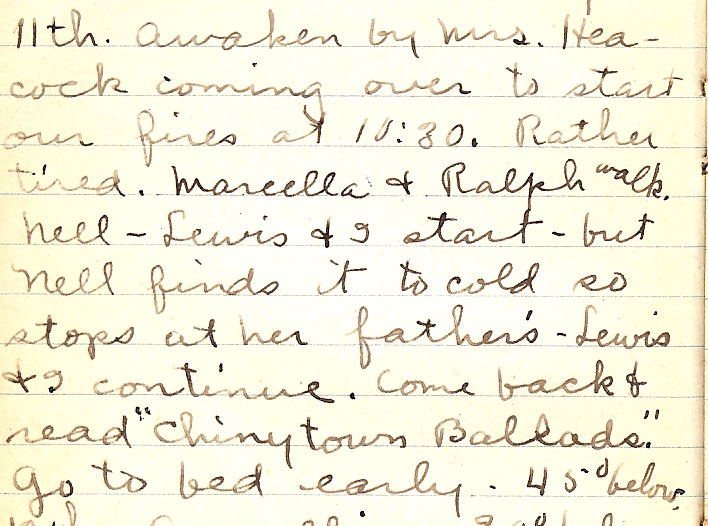 11th. Awaken by Mrs. Hea-
cock coming over to start
our fires at 10:30. Rather
tired. Marcella & Ralph walk.
Nell - Lewis & I start - but
Nell finds it to cold so
stops at her father's - Lewis
& I continue. Come back &
read "Chinytown Ballads."
Go to bed early. 45° below.